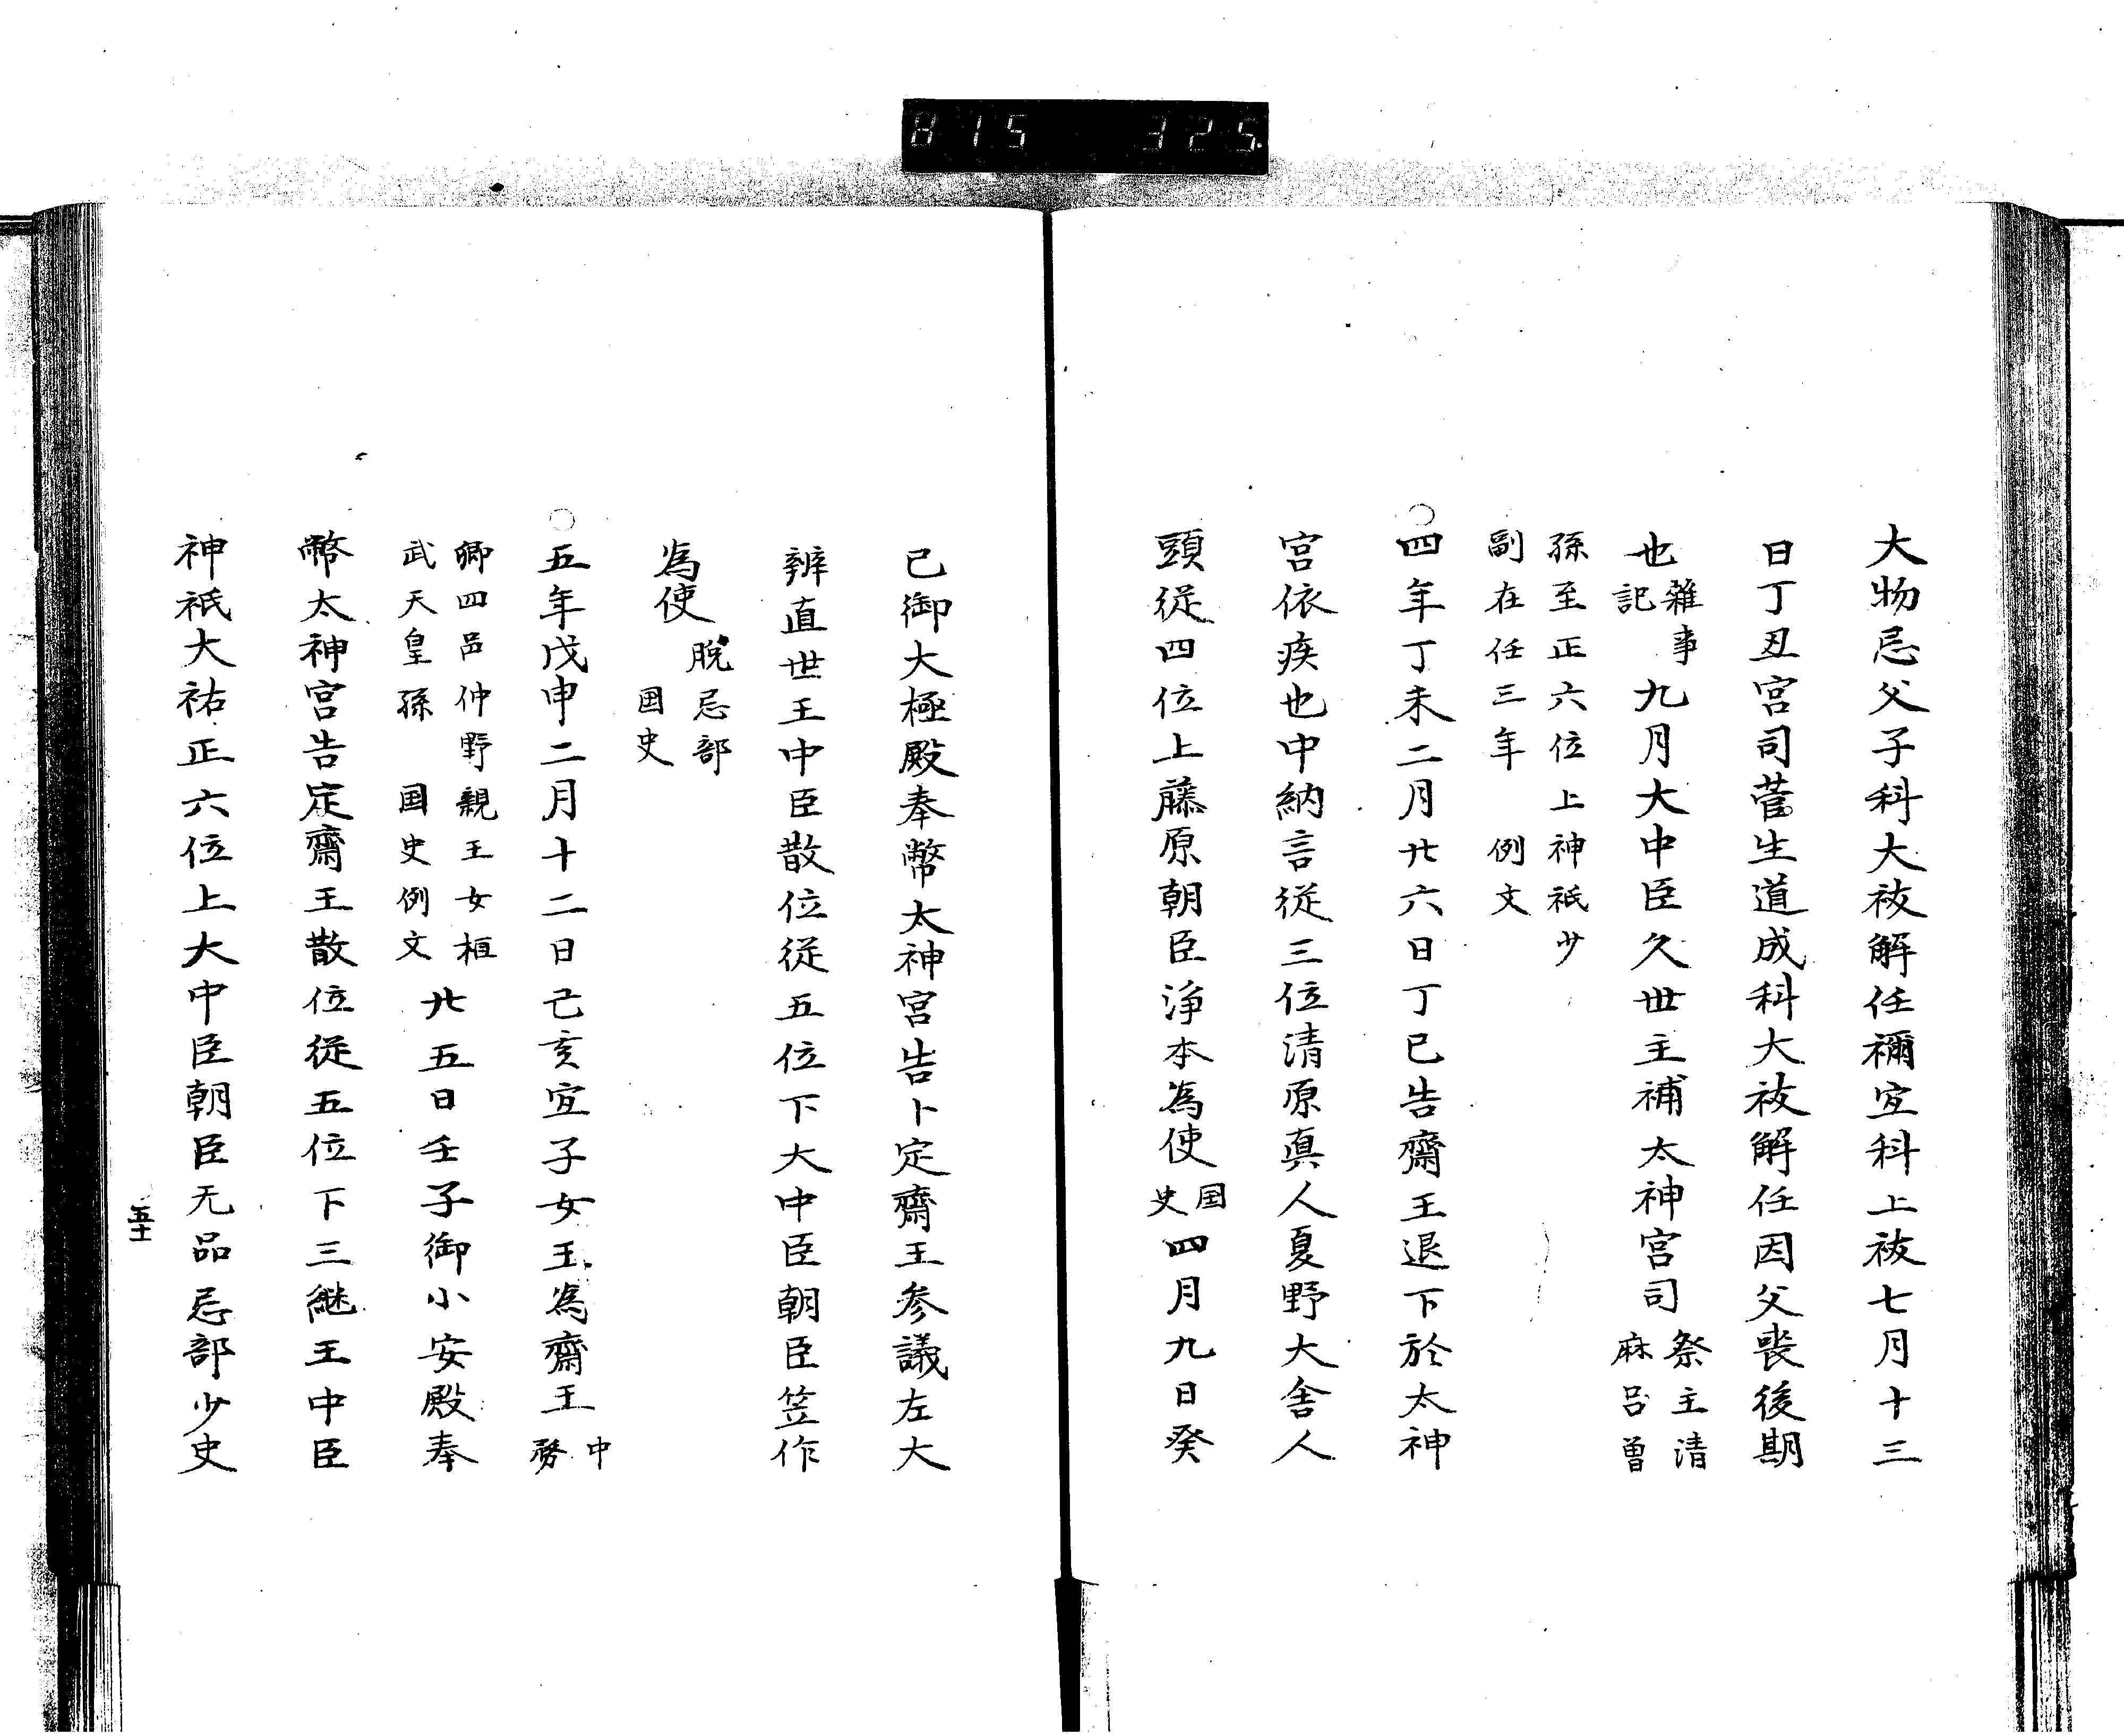 815 325
大物忌父子科大祓解任禰宜科上祓七月十三
日丁丑宮司菅生道成科大祓解任因父喪後期
也雜事記九月大中臣久世主補太神宮司祭主清麻呂曽
孫至正六位上神祇少副在任三年 例文
○四年丁未二月廿六日丁巳告齋王退下於太神
宮依疾也中納言従三位清原真人夏野大舎人
頭従四位上藤原朝臣浄本為使国史四月九日癸
巳御大極殿奉幣太神宮告卜定齋王参議左大
辨直世王中臣散位従五位下大中臣朝臣笠作
為使脱忌部国史
○五年戊申二月十二日己亥宜子女王為齋王中務
卿四品仲野親王女桓武天皇孫 国史例文廿五日壬子御小安殿奉
幣太神宮告定齋王散位従五位下三継王中臣
神祇大祐正六位上大中臣朝臣无品忌部少史
五十